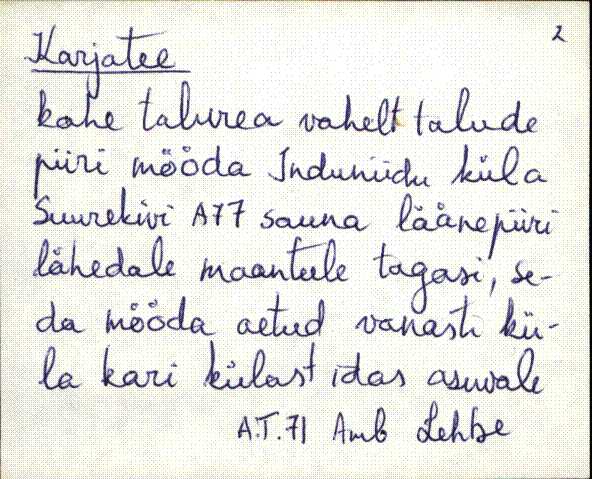 2
Karjatee
kahe talurea vahelt talude
piiri mööda Induniidu küla
Suurekivi A77 sauna läänepiiri
lähedale maanteele tagasi, se-
da mööda aetud vanasti kü-
la kari külast idas asuvale
A.T. 71 Amb Lehtse